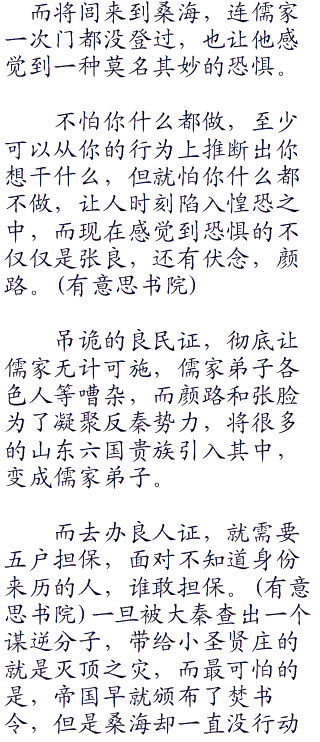 而将闾来到桑海，连儒家
一次门都没登过，也让他感
觉到一种莫名其妙的恐惧。
不怕你什么都做，至少
可以从你的行为上推断出你
想干什么，但就怕你什么都
不做，让人时刻陷入惶恐之
中，而现在感觉到恐惧的不
仅仅是张良，还有伏念，颜
路。(有意思书院)
吊诡的良民证，彻底让
儒家无计可施，儒家弟子各
色人等嘈杂，而颜路和张脸
为了凝聚反秦势力，将很多
的山东六国贵族引入其中，
变成儒家弟子。
而去办良人证，就需要
五户担保，面对不知道身份
来历的人，谁敢担保。(有意
思书院)一旦被大秦查出一个
谋逆分子，带给小圣贤庄的
就是灭顶之灾，而最可怕的
是，帝国早就颁布了焚书
令，但是桑海却一直没行动